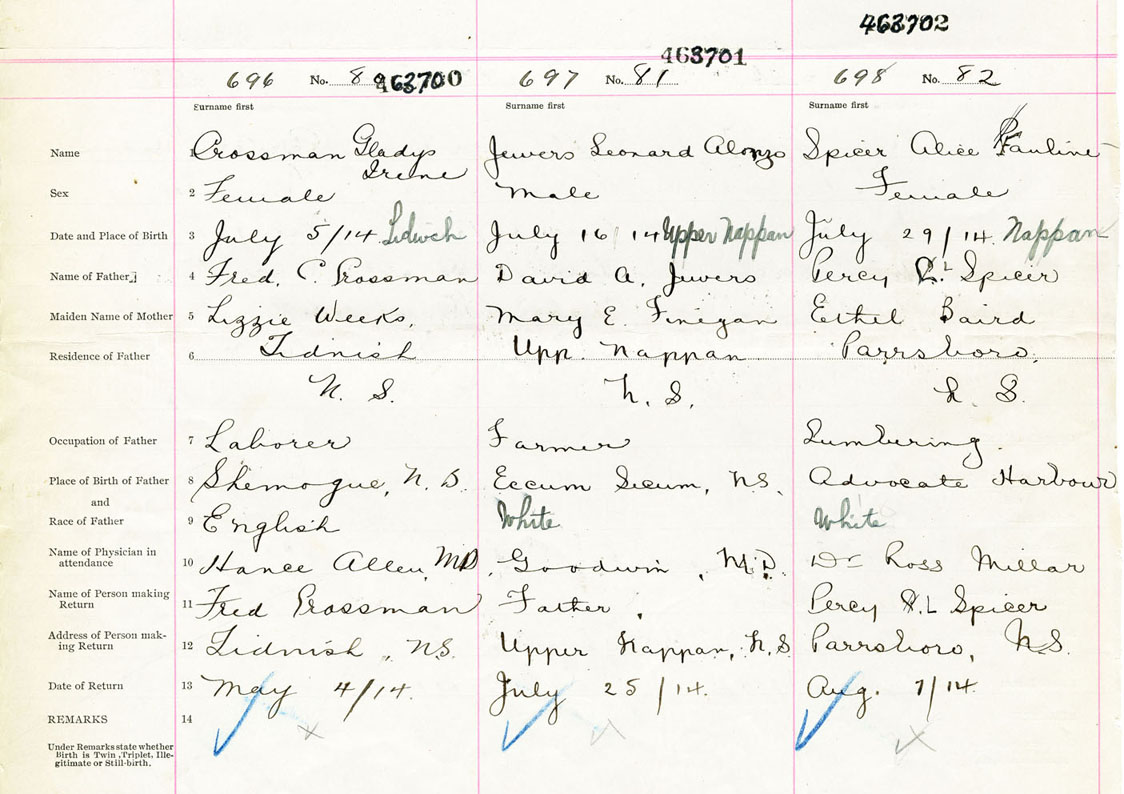 463702
463701
696 No. 8 463700 697 No. 81 698 No. 82
Surname first Surname first Surname first
Name 1 Crossman Gladys Irene Jewers Leonard Alonzo Spicer Alice Pauline
Sex 2 Female Male Female
Date and Place of Birth 3 July 5/14 July 16 14 Upper Nappan July 29/14. Nappan
Name of Father 4 Fred. C. Crossman David A. Jewers Percy L. Spicer
Maiden Name of Mother 5 Lizzie Weeks, Mary E. Finigan Ethel Baird
Residence of Father 6 Tidnish Upp. Nappan Parrsboro,
N. S. N. S. N. S.
Occupation of Father 7 Laborer Farmer Lumbering.
Place of Birth of Father 8 Shemogue, N. B. Eccum Secum, N.S. Advocate Harbour
and
Race of Father 9 English White White
Name of Physician in attendance 10 Hance Allen, MD Goodwin, M.D. Dr Ross Millar
Name of Person making Return 11 Fred Crossman Father, Percy L Spicer
Address of Person making Return 12 Tidnish, N.S. Upper Nappan, N.S. Parrsboro, N.S.
Date of Return 13 May 4/14. July 25/14. Aug. 7/14.
REMARKS 14
Under Remarks state whether
Birth is Twin, Triplet, Ille-
gitimate or Still-birth.